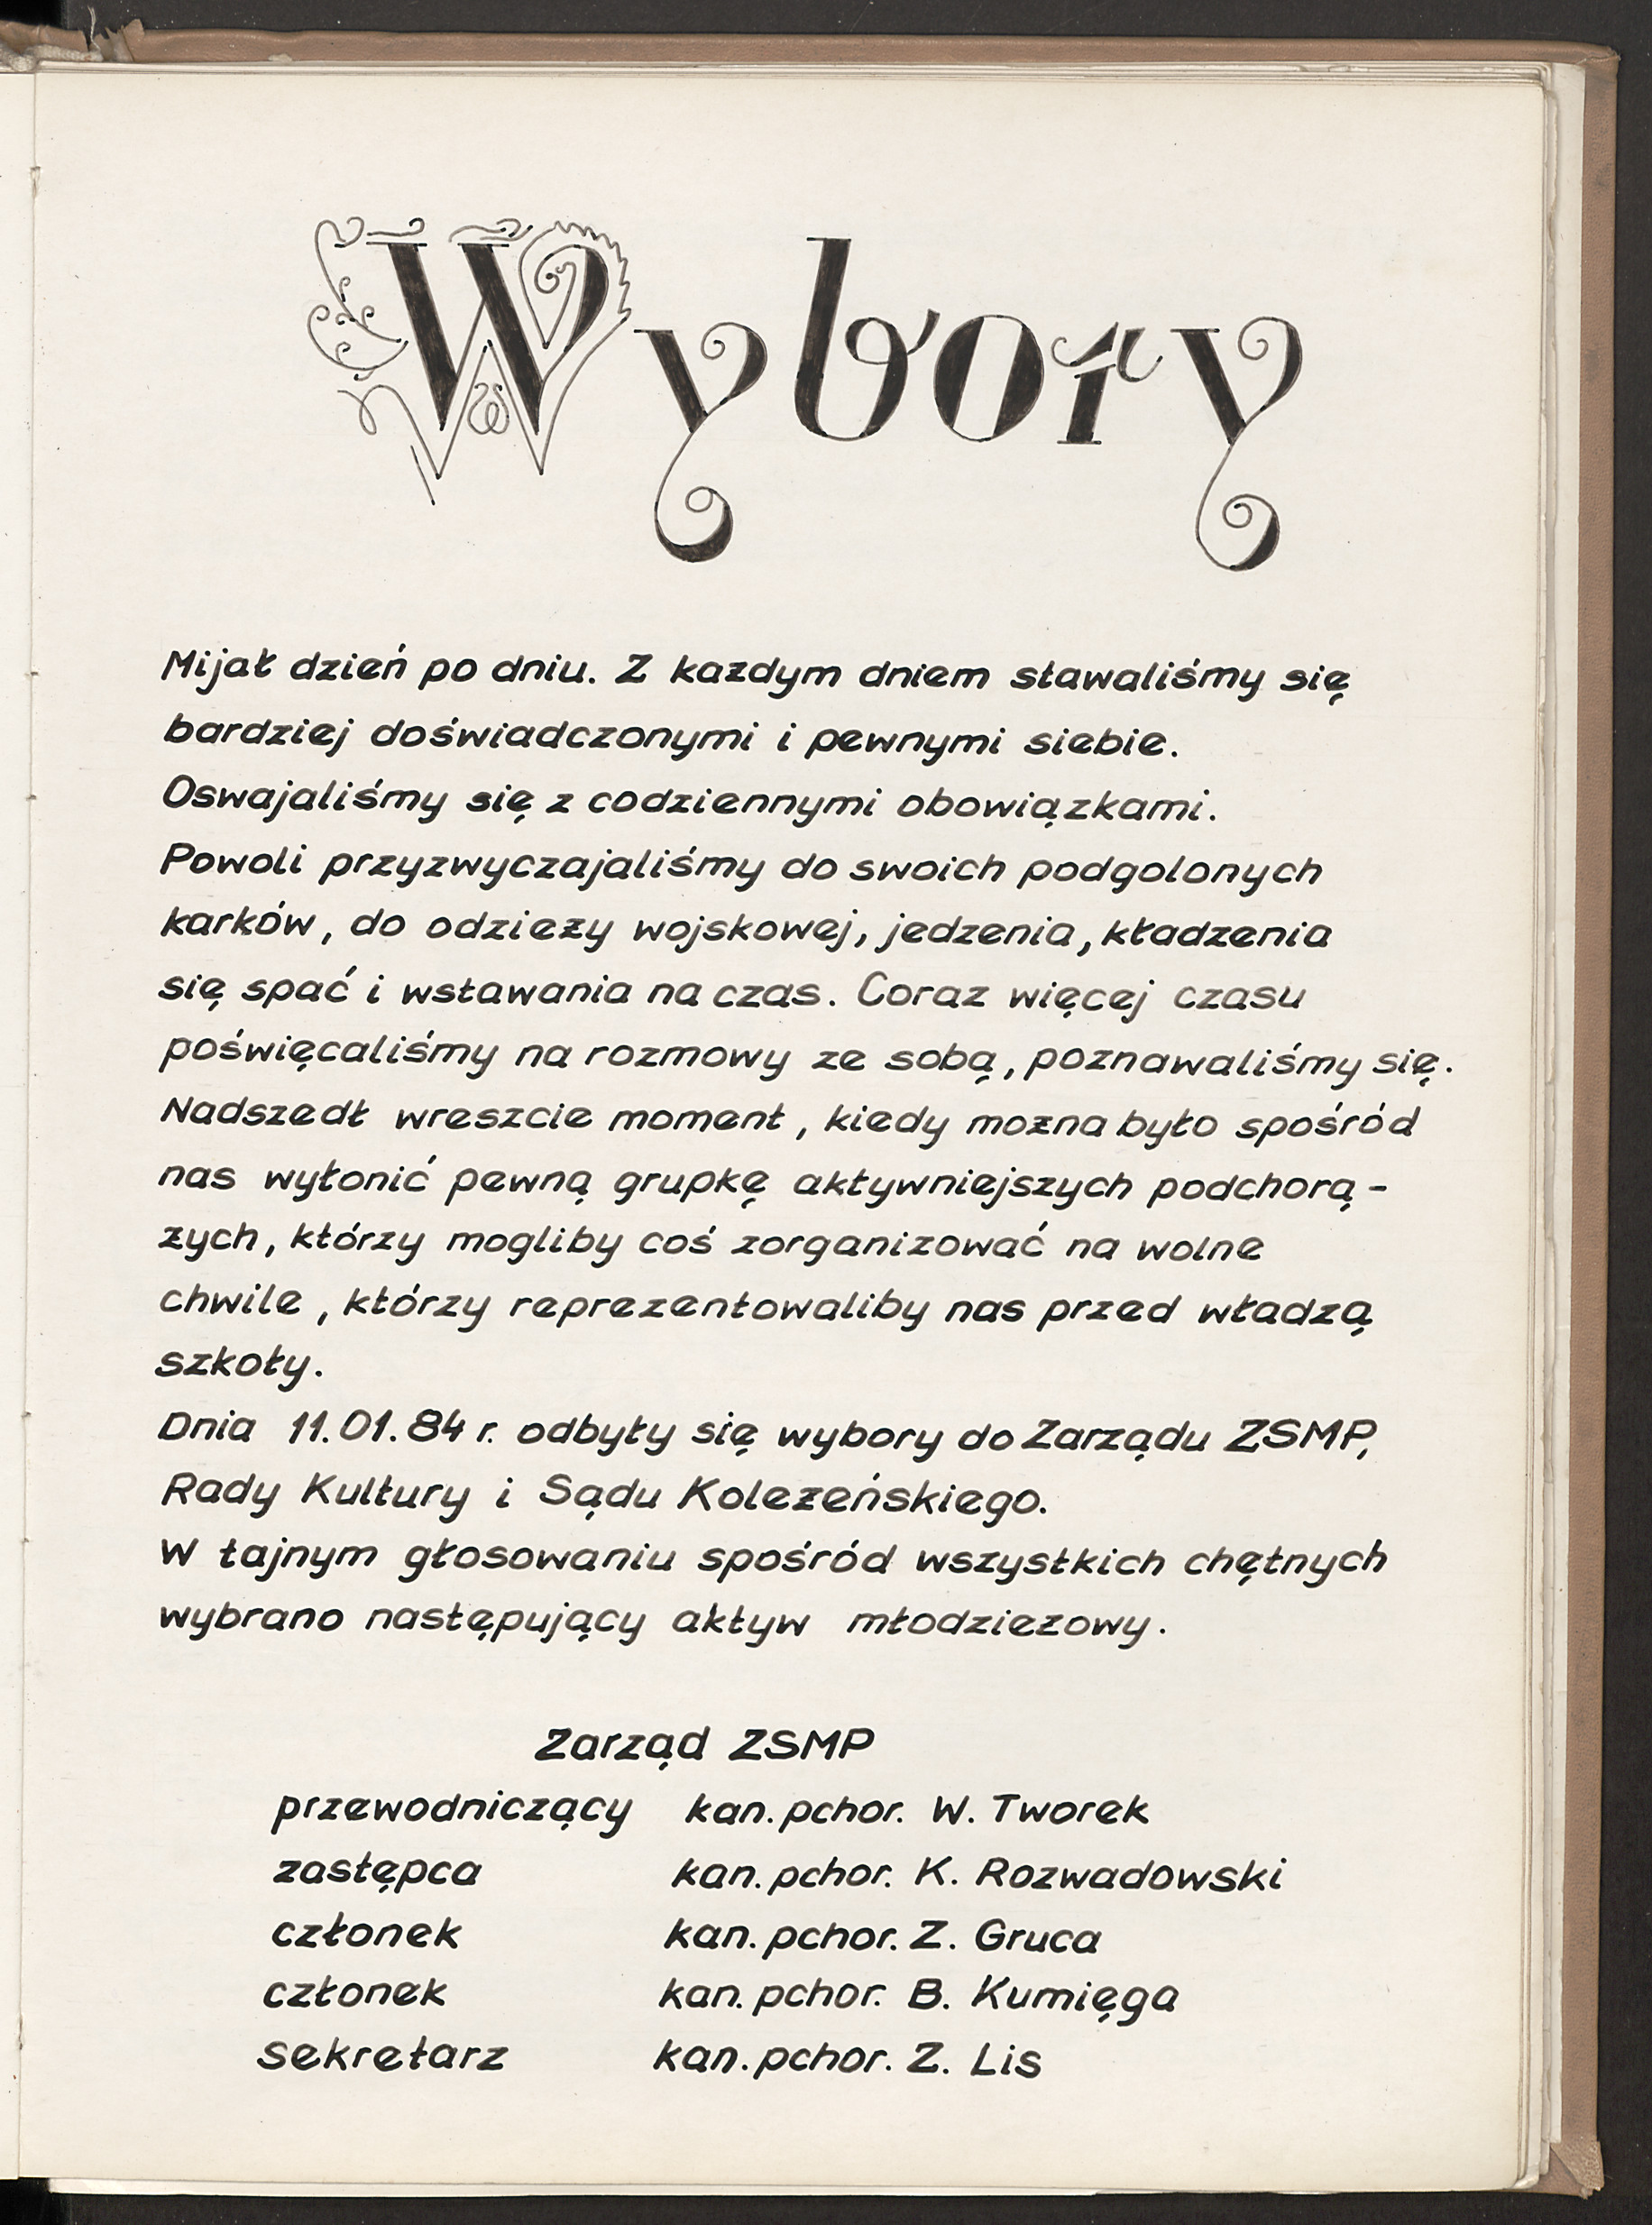 Wybory
Mijał dzień po dniu. Z każdym dniem stawaliśmy się
bardziej doświadczonymi i pewnymi siebie.
Oswajaliśmy się z codziennymi obowiązkami.
Powoli przyzwyczajaliśmy do swoich podgolonych
karków, do odzieży wojskowej, jedzenia, kładzenia
się spać i wstawania na czas. Coraz więcej czasu
poświęcaliśmy na rozmowy ze sobą, poznawaliśmy się.
Nadszedł wreszcie moment, kiedy można było spośród
nas wyłonić pewną grupkę aktywniejszych podchorą-
żych, którzy mogliby coś zorganizować na wolne
chwile, którzy reprezentowaliby nas przed władzą
szkoły.
Dnia 11.01.84 r. odbyły się wybory do Zarządu ZSMP,
Rady Kultury i Sądu Koleżeńskiego.
W tajnym głosowaniu spośród wszystkich chętnych
wybrano następujący aktyw młodzieżowy.
Zarząd ZSMP
przewodniczący kan. pchor. W. Tworek
zastępca kan. pchor. K. Rozwadowski
członek kan. pchor. Z. Gruca
członek kan. pchor. B. Kumięga
sekretarz kan. pchor. Z. Lis